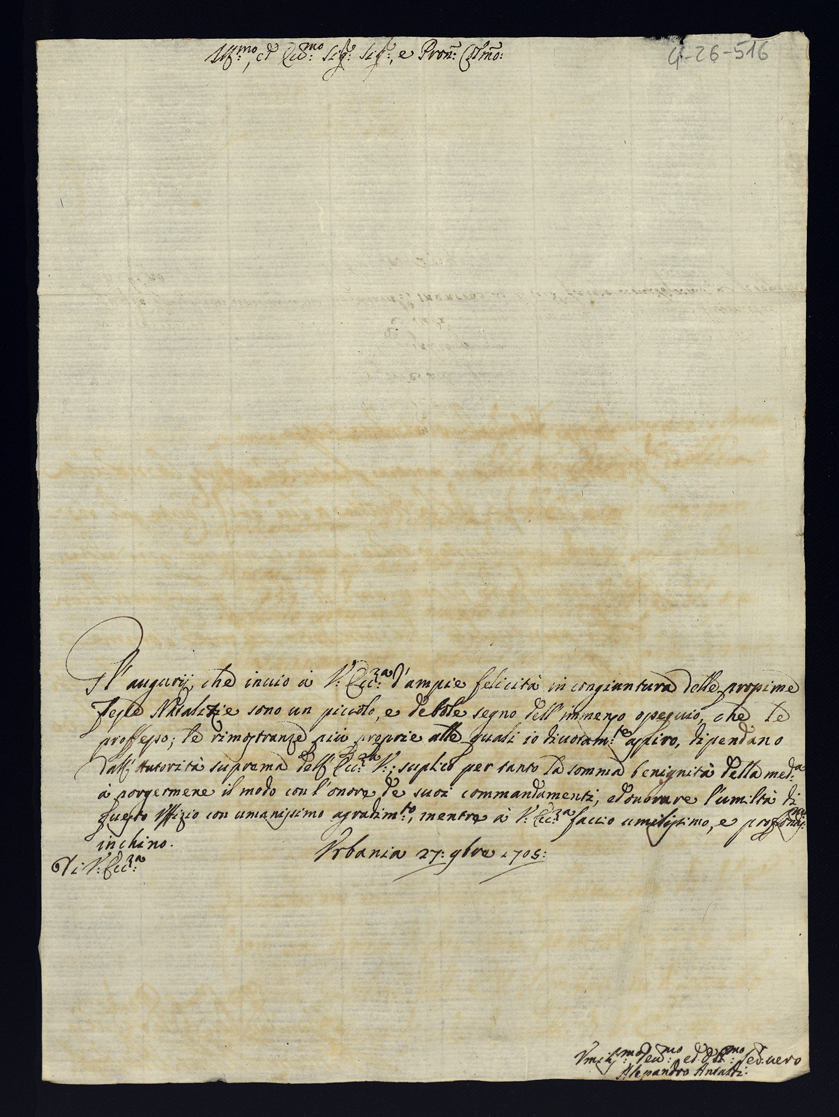 Ill:mo, et Ecc:mo Sig:r Sig:r, e Pron: Col:mo:
4-26-516
Gl'augurij, che inuio à V: Ecc:za d'ampie felicità in congiuntura delle propime
feste Natalizie sono un piccolo, e debole segno dell'immenso ossequio, che le
professo; le rimostranze più proprie alle quali io diuotam:te aspiro, dipendano
dall'Autorità suprema dell'Ecc:za V: suplico per tanto la somma benignità della med:a
à porgermene il modo con l'onore de suoi commandamenti, ed onorare l'umiltà di
questo Uffizio con umanissimo agradim:to, mentre à V: Ecc:za faccio umilissimo, e
inchino.
Vrbania 27: 9bre 1705:
Di V: Ecc:za
Vmiliss:mo Deu:mo ed Obl:mo Seruero
Alessandro